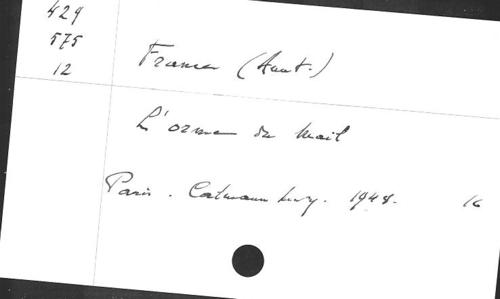 429
575
12
France (Anat.)
L'orme du Mail
Paris. Calmann Levy. 1948. 16